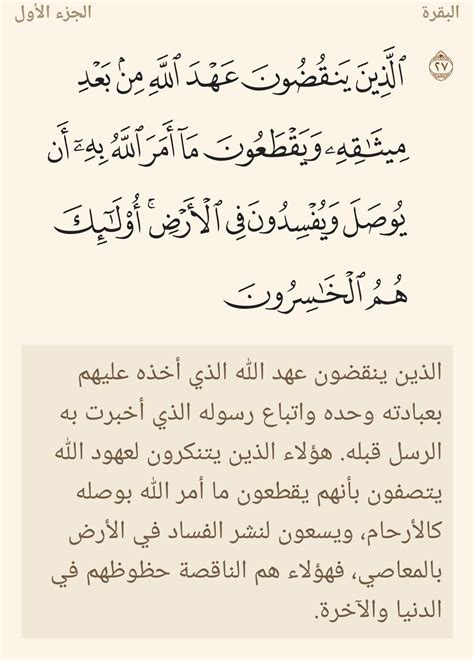 البقرة
الجزء الأول
٢٧
ٱلَّذِينَ يَنقُضُونَ عَهۡدَ ٱللَّهِ مِنۢ بَعۡدِ
مِيثَٰقِهِۦ وَيَقۡطَعُونَ مَآ أَمَرَ ٱللَّهُ بِهِۦٓ أَن
يُوصَلَ وَيُفۡسِدُونَ فِي ٱلۡأَرۡضِۚ أُوْلَٰٓئِكَ
هُمُ ٱلۡخَٰسِرُونَ
الذين ينقضون عهد الله الذي أخذه عليهم
بعبادته وحده واتباع رسوله الذي أخبرت به
الرسل قبله. هؤلاء الذين يتنكرون لعهود الله
يتصفون بأنهم يقطعون ما أمر الله بوصله
كالأرحام، ويسعون لنشر الفساد في الأرض
بالمعاصي، فهؤلاء هم الناقصة حظوظهم في
الدنيا والآخرة.